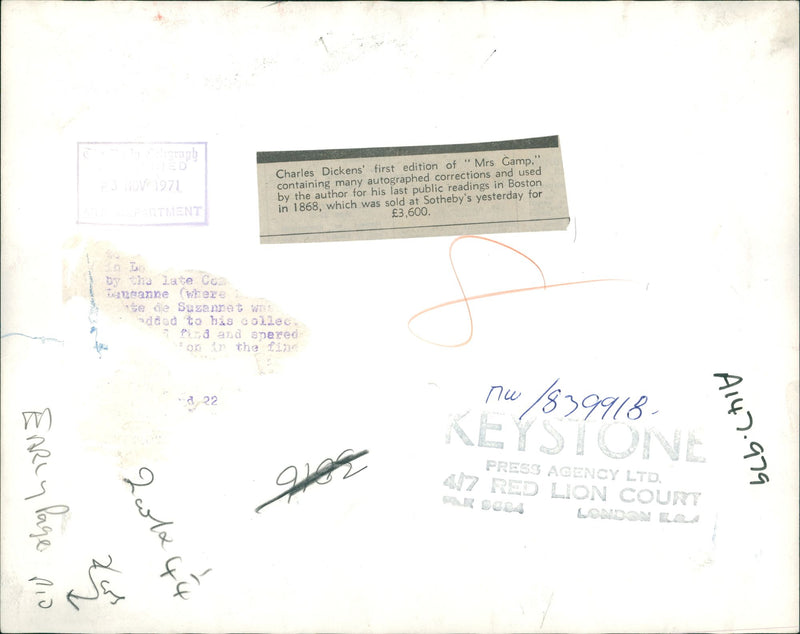 Charles Dickens' first edition of "Mrs Gamp,"
containing many autographed corrections and used
by the author for his last public readings in Boston
in 1868, which was sold at Sotheby's yesterday for
£3,600.
NOV 1971
DEPARTMENT
in Lo
by the late Com
Lausanne (where
te de Suzannet wa
added to his collec
find and spared
ion in the fine
d 22
nw/839918-
KEYSTONE
PRESS AGENCY LTD.
4/7 RED LION COURT
LONDON E.C.4
A147.979
9182
EARLY Page